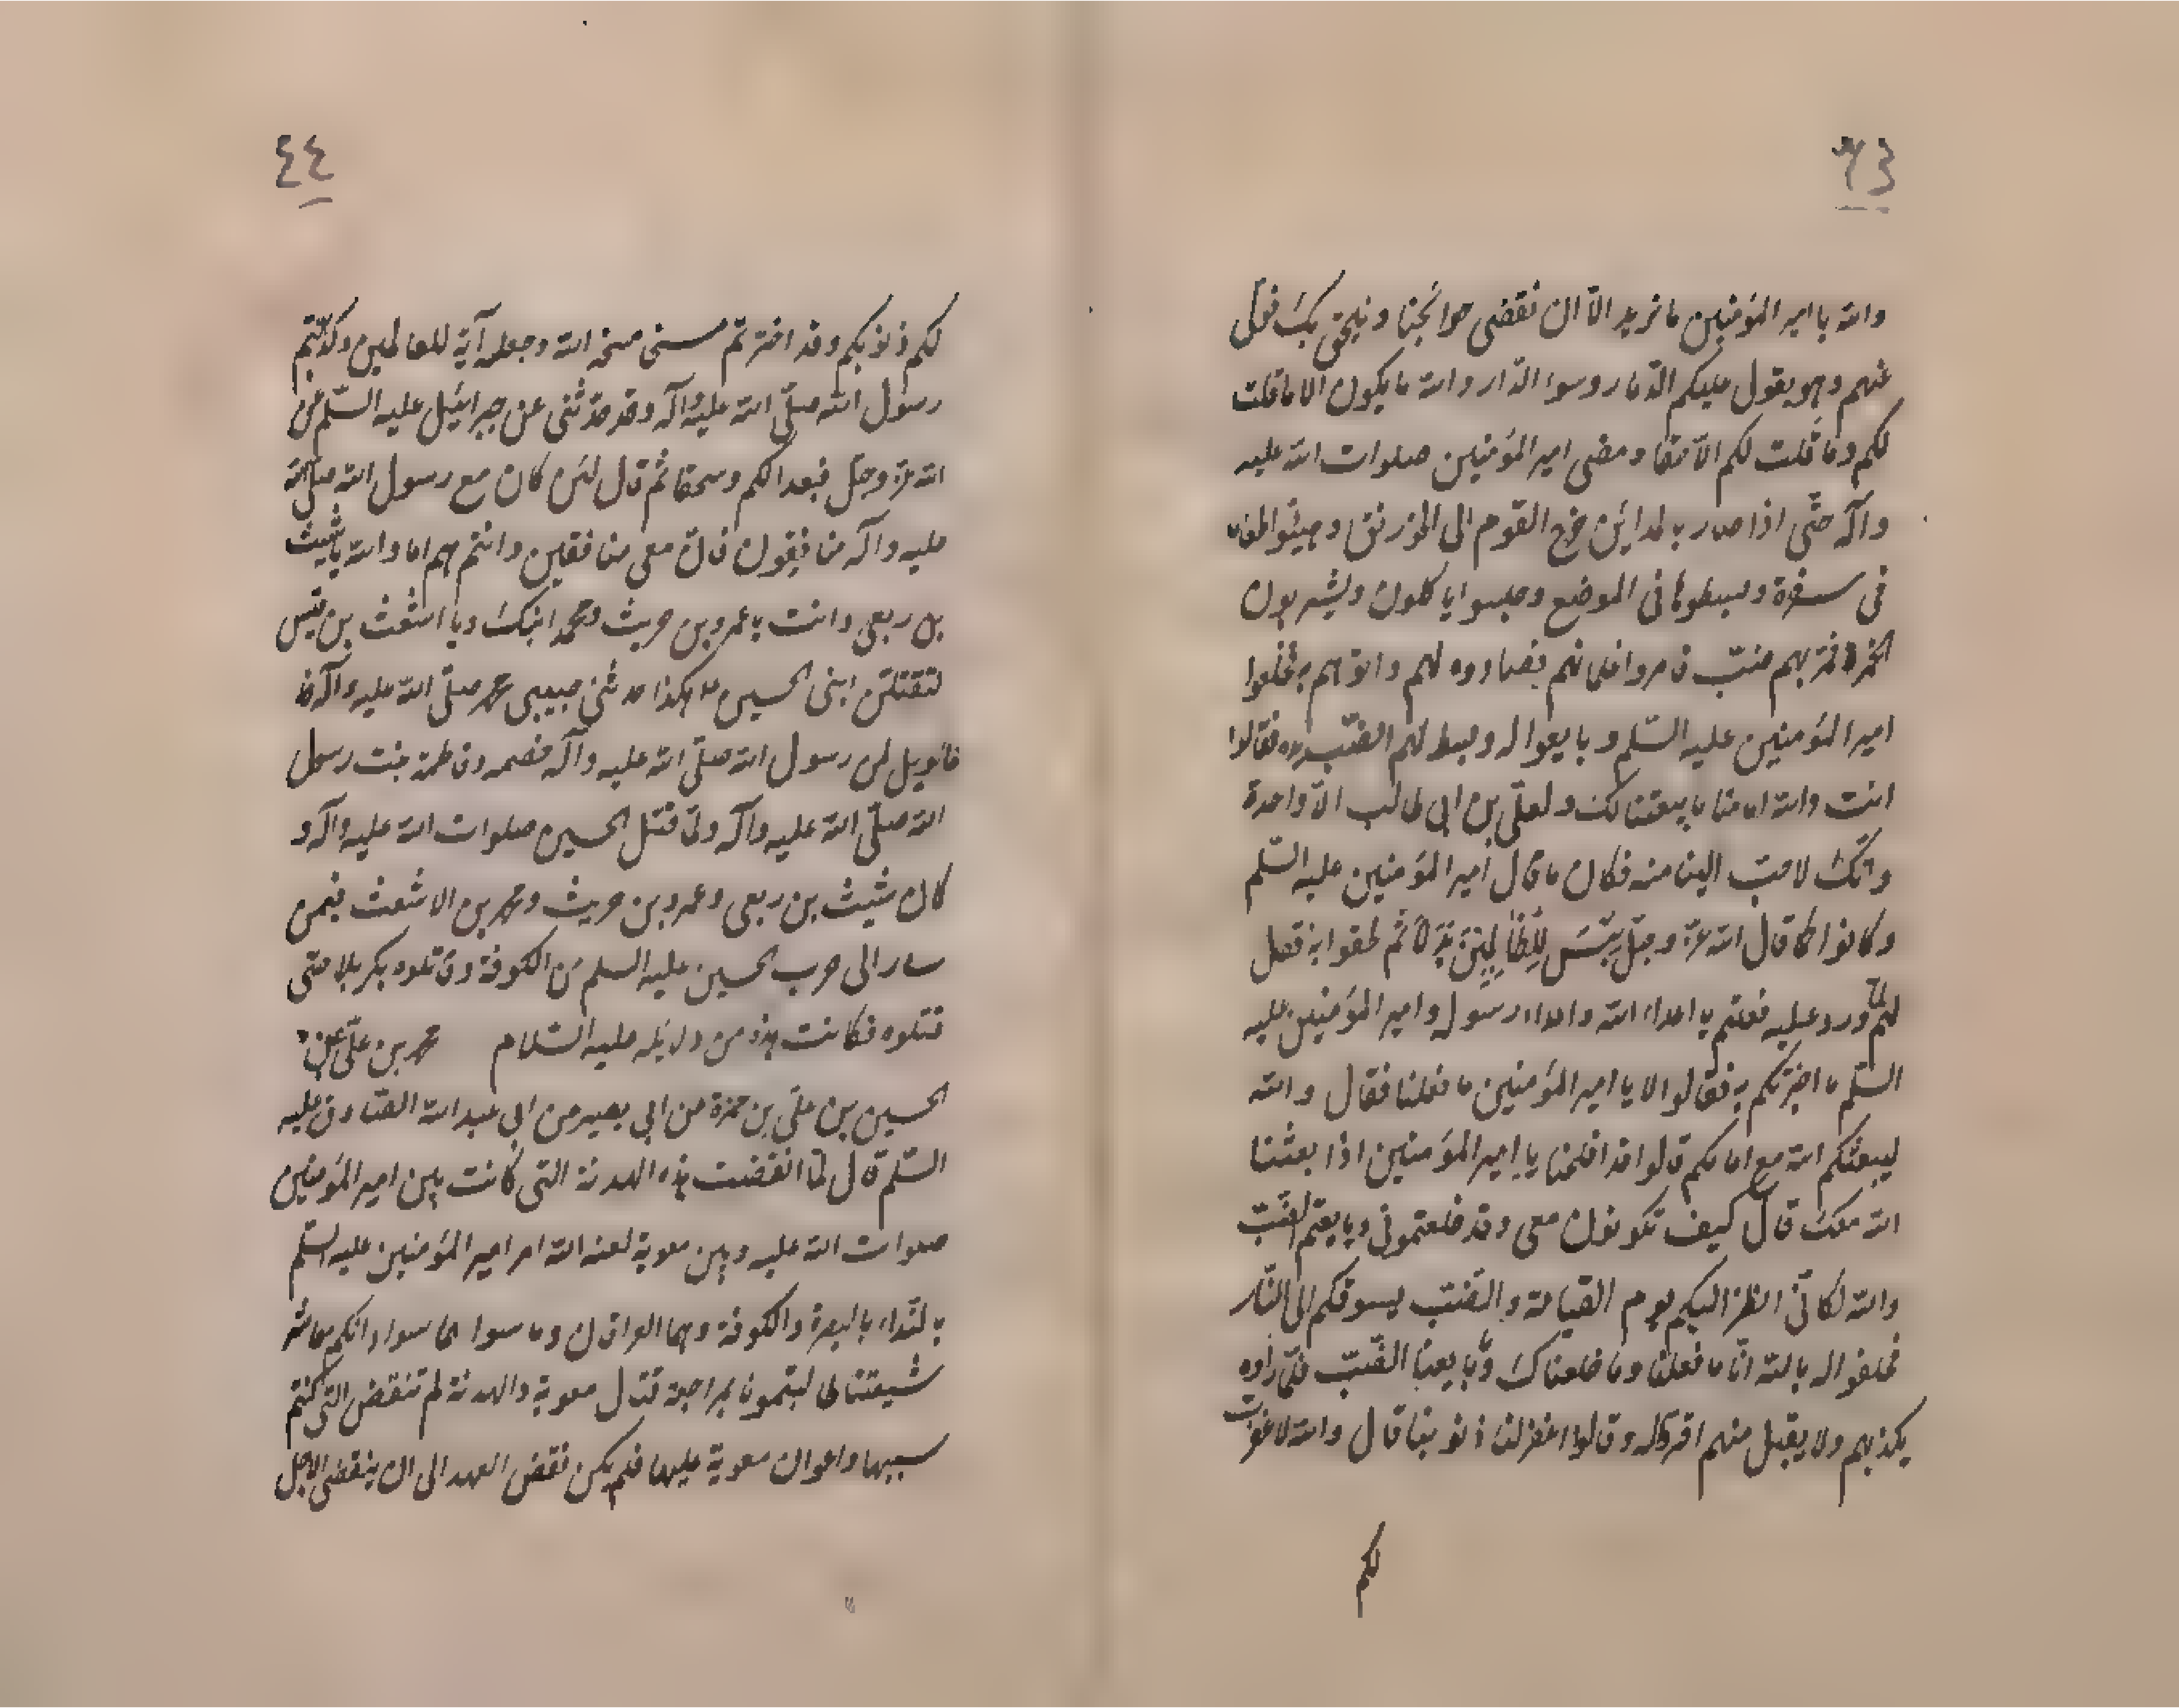 ٤٣
والله يا امير المؤمنين ما نريد الّا ان نقضى حوائجنا ونلحق بك فولى
عنهم وهو يقول عليكم الدّمار وسوء الدّار والله ما يكون الا ما قلت
لكم وما قلت لكم الّا حقّا ومضى امير المؤمنين صلوات الله عليه
وآله حتّى اذا صار بالمدائن خرج القوم الى الخورنق وهيئوا طعاما
فى سفرة وبسطوها فى الموضع وجلسوا ياكلون ويشربون
الخمر فمرّ بهم ضبّ فامروا غلمانهم فصادوه لهم واتوهم به فخلعوا
امير المؤمنين عليه السّلم وبايعوا له وبسط لهم الضّبّ يده فقالوا
انت والله امامنا ما بيعتنا لك ولعلّى بن ابى طالب الّا واحدة
وانّك لاحبّ الينا منه فكان ما قال امير المؤمنين عليه السّلم
وكانوا كما قال الله عزّ وجلّ بِئْسَ لِلظّالِمِينَ بَدَلًا ثم لحقوا به فقال
لهم لمّا ورد عليه فعلتم يا اعداء الله واعداء رسوله وامير المؤمنين عليه
السّلم ما اخبرتكم به فقالوا لا يا امير المؤمنين ما فعلنا فقال والله
ليبعثكم الله مع امامكم قالوا قد افلحنا يا امير المؤمنين اذا بعثنا
الله معك قال كيف تكونون معى وقد خلعتمونى وبايعتم الضّبّ
والله لكانّى انظر اليكم يوم القيامة والضّبّ يسوقكم الى النّار
فحلفوا له بالله انّا ما فعلنا وما خلعناك ولا بايعنا الضّبّ فلمّا راوه
يكذبهم ولا يقبل منهم اقرّوا له وقالوا اغفر لنا ذنوبنا قال والله لا غفرت
لكم
٤٤
لكم ذنوبكم وقد اخترتم مسخى مسخه الله وجعله آية للعالمين وكذّبتم
رسول الله صلّى الله عليه وآله وقد حدّثنى عن جبرائيل عليه السّلم عن
الله عزّ وجلّ فبعدا لكم وسحقا ثم قال لئن كان مع رسول الله صلّى الله
عليه وآله منافقون فانّ معى منافقين وانتم هم اما والله يا شبث
بن ربعى وانت يا عمرو بن حريث ومحمد ابنك ويا اشعث بن قيس
لتقتلنّ ابنى الحسين ع هكذا حدثنى حبيبى محمد صلّى الله عليه وآله
فالويل لمن رسول الله صلّى الله عليه وآله خصمه وفاطمة بنت رسول
الله صلّى الله عليه وآله ولمّا قتل الحسين صلوات الله عليه وآله و
كان شبث بن ربعى وعمرو بن حريث ومحمد بن الاشعث فيمن
سار الى حرب الحسين عليه السلم من الكوفة وقاتلوه بكربلا حتى
قتلوه فكانت هذه من دلايله عليه السّلام محمد بن علىّ عن
الحسين بن علىّ بن حمزة عن ابى بصير عن ابى عبد الله الصّادق عليه
السّلم قال لمّا انقضت هذه الهدنة التى كانت بين امير المؤمنين
صلوات الله عليه وبين معوية لعنه الله امر امير المؤمنين عليه السّلم
بالنّداء بالبصرة والكوفة وهما العراقان وما سواهما سواد انكم معاشر
شيعتنا طالبتمونا بمراجعة قتال معوية والهدنة لم تنقض التى كنتم
سببها واعوان معوية عليها فلم يكن نقض العهد الى ان ينقضى الاجل